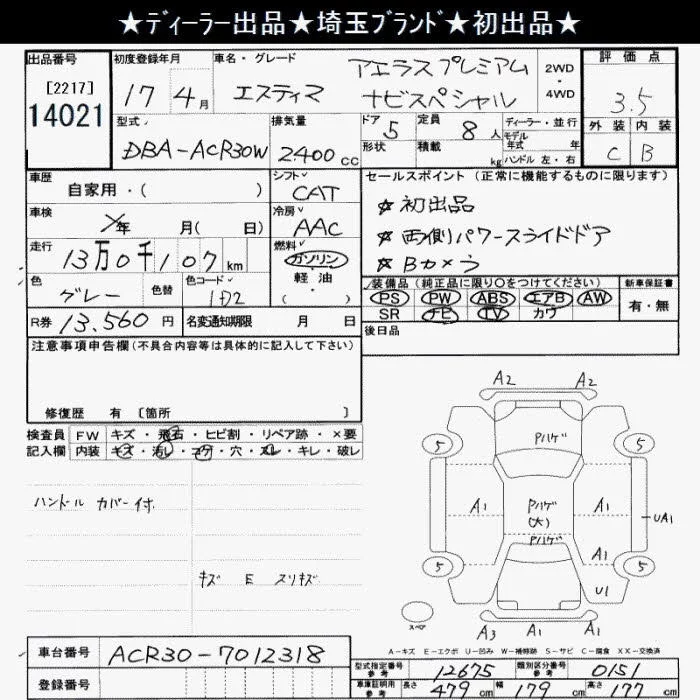 ★ディーラー出品★埼玉ブランド★初出品★
出品番号 初度登録年月 車名・グレード 評価点
[2217] 14021
17年4月 エスティマ アエラスプレミアム ナビスペシャル 2WD・4WD 3.5
型式 排気量 ドア 定員 ディーラー・並行 外装 内装
DBA-ACR30W 2400cc 5 8人 モデル年式 年 C B
形状 積載 kg ハンドル 左・右
車歴 シフト セールスポイント(正常に機能するものに限ります)
自家用・( ) CAT
☆初出品
車検 年 月( 日) 冷房 AAC
☆両側パワースライドドア
走行 13万0千107km 燃料 ガソリン 軽・油 ( )
☆Bカメラ
色 グレー 色替 色コード 1D2
装備品(純正品に限り○をつけてください) 新車保証書
PS PW ABS エアB AW 有・無
SR ナビ TV カワ
R券 13,560円 名変通知期限 月 日
後日品
注意事項申告欄(不具合内容等は具体的に記入して下さい)
修復歴 有 [箇所 ]
検査員 FW キズ・飛石・ヒビ割・リペア跡・×要
記入欄 内装 キズ・汚レ・コゲ・穴・スレ・キレ・破レ
ハンドル カバー付
キズ E スリキズ
A2 A2
Pハゲ
5 5
A1 Pハゲ(大) A1 UA1
Pハゲ
A1
5 5
U1
スペア
A3 A1 A1
A-キズ E-エクボ U-凹み W-補修跡 S-サビ C-腐食 XX-交換済
車台番号 ACR30-7012318
型式指定番号 参考 12675 類別区分番号 参考 0151
登録番号
車庫証明用 参考 長さ 479cm 幅 179cm 高さ 177cm